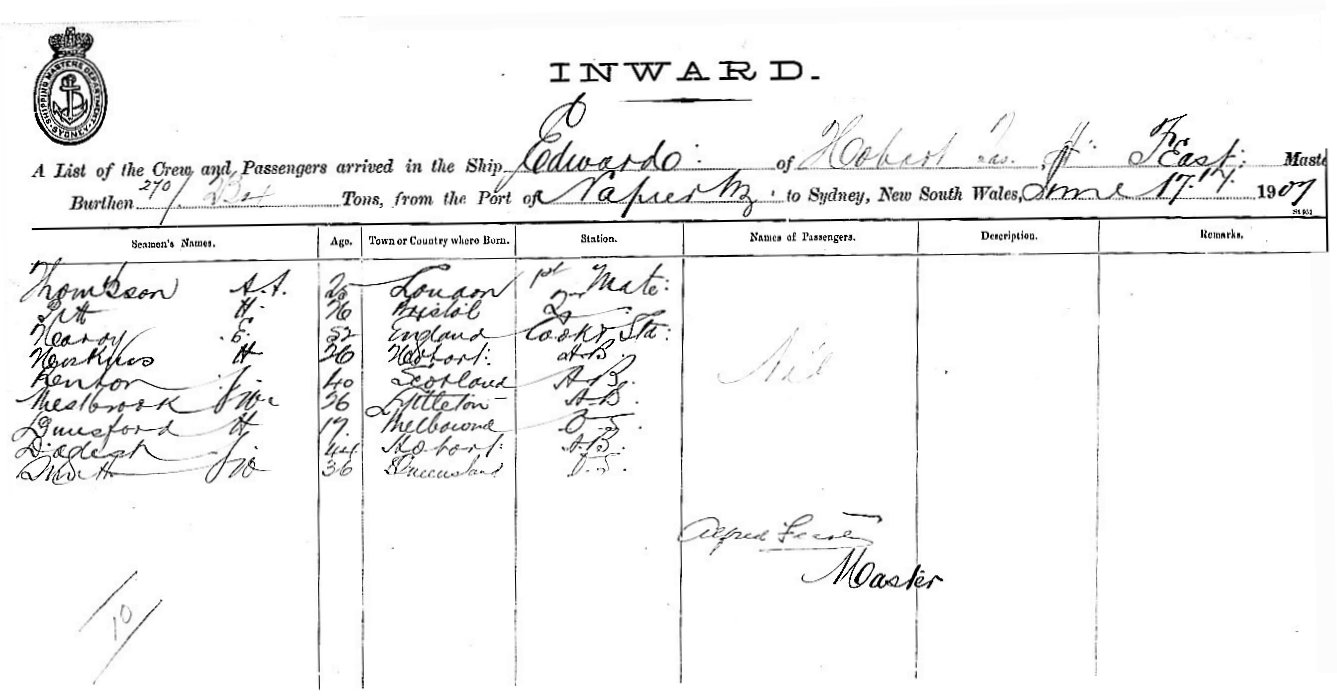 SHIPPING MASTERS DEPARTMENT SYDNEY
INWARD.
A List of the Crew and Passengers arrived in the Ship Edward of Hobart Tas. East: Maste
Burthen 270/ Tons, from the Port of Napier NZ to Sydney, New South Wales, June 17th 1907
Seamen's Names. Age. Town or Country where Born. Station. Names of Passengers. Description. Remarks.
Thompson A.A. 25 London 1st Mate:
Pitt H. 26 Bristol 2nd
Hardy E. 52 England Cook & Std:
H 26 Hobart: A.B.
Kenton 40 Scotland A.B.
Nil
Westbrook 26 Lyttleton A.B.
H 17 Melbourne O.S.
44 Hobart: A.B.
Smith 36 Queensland O.S.
Alfred
Master
10